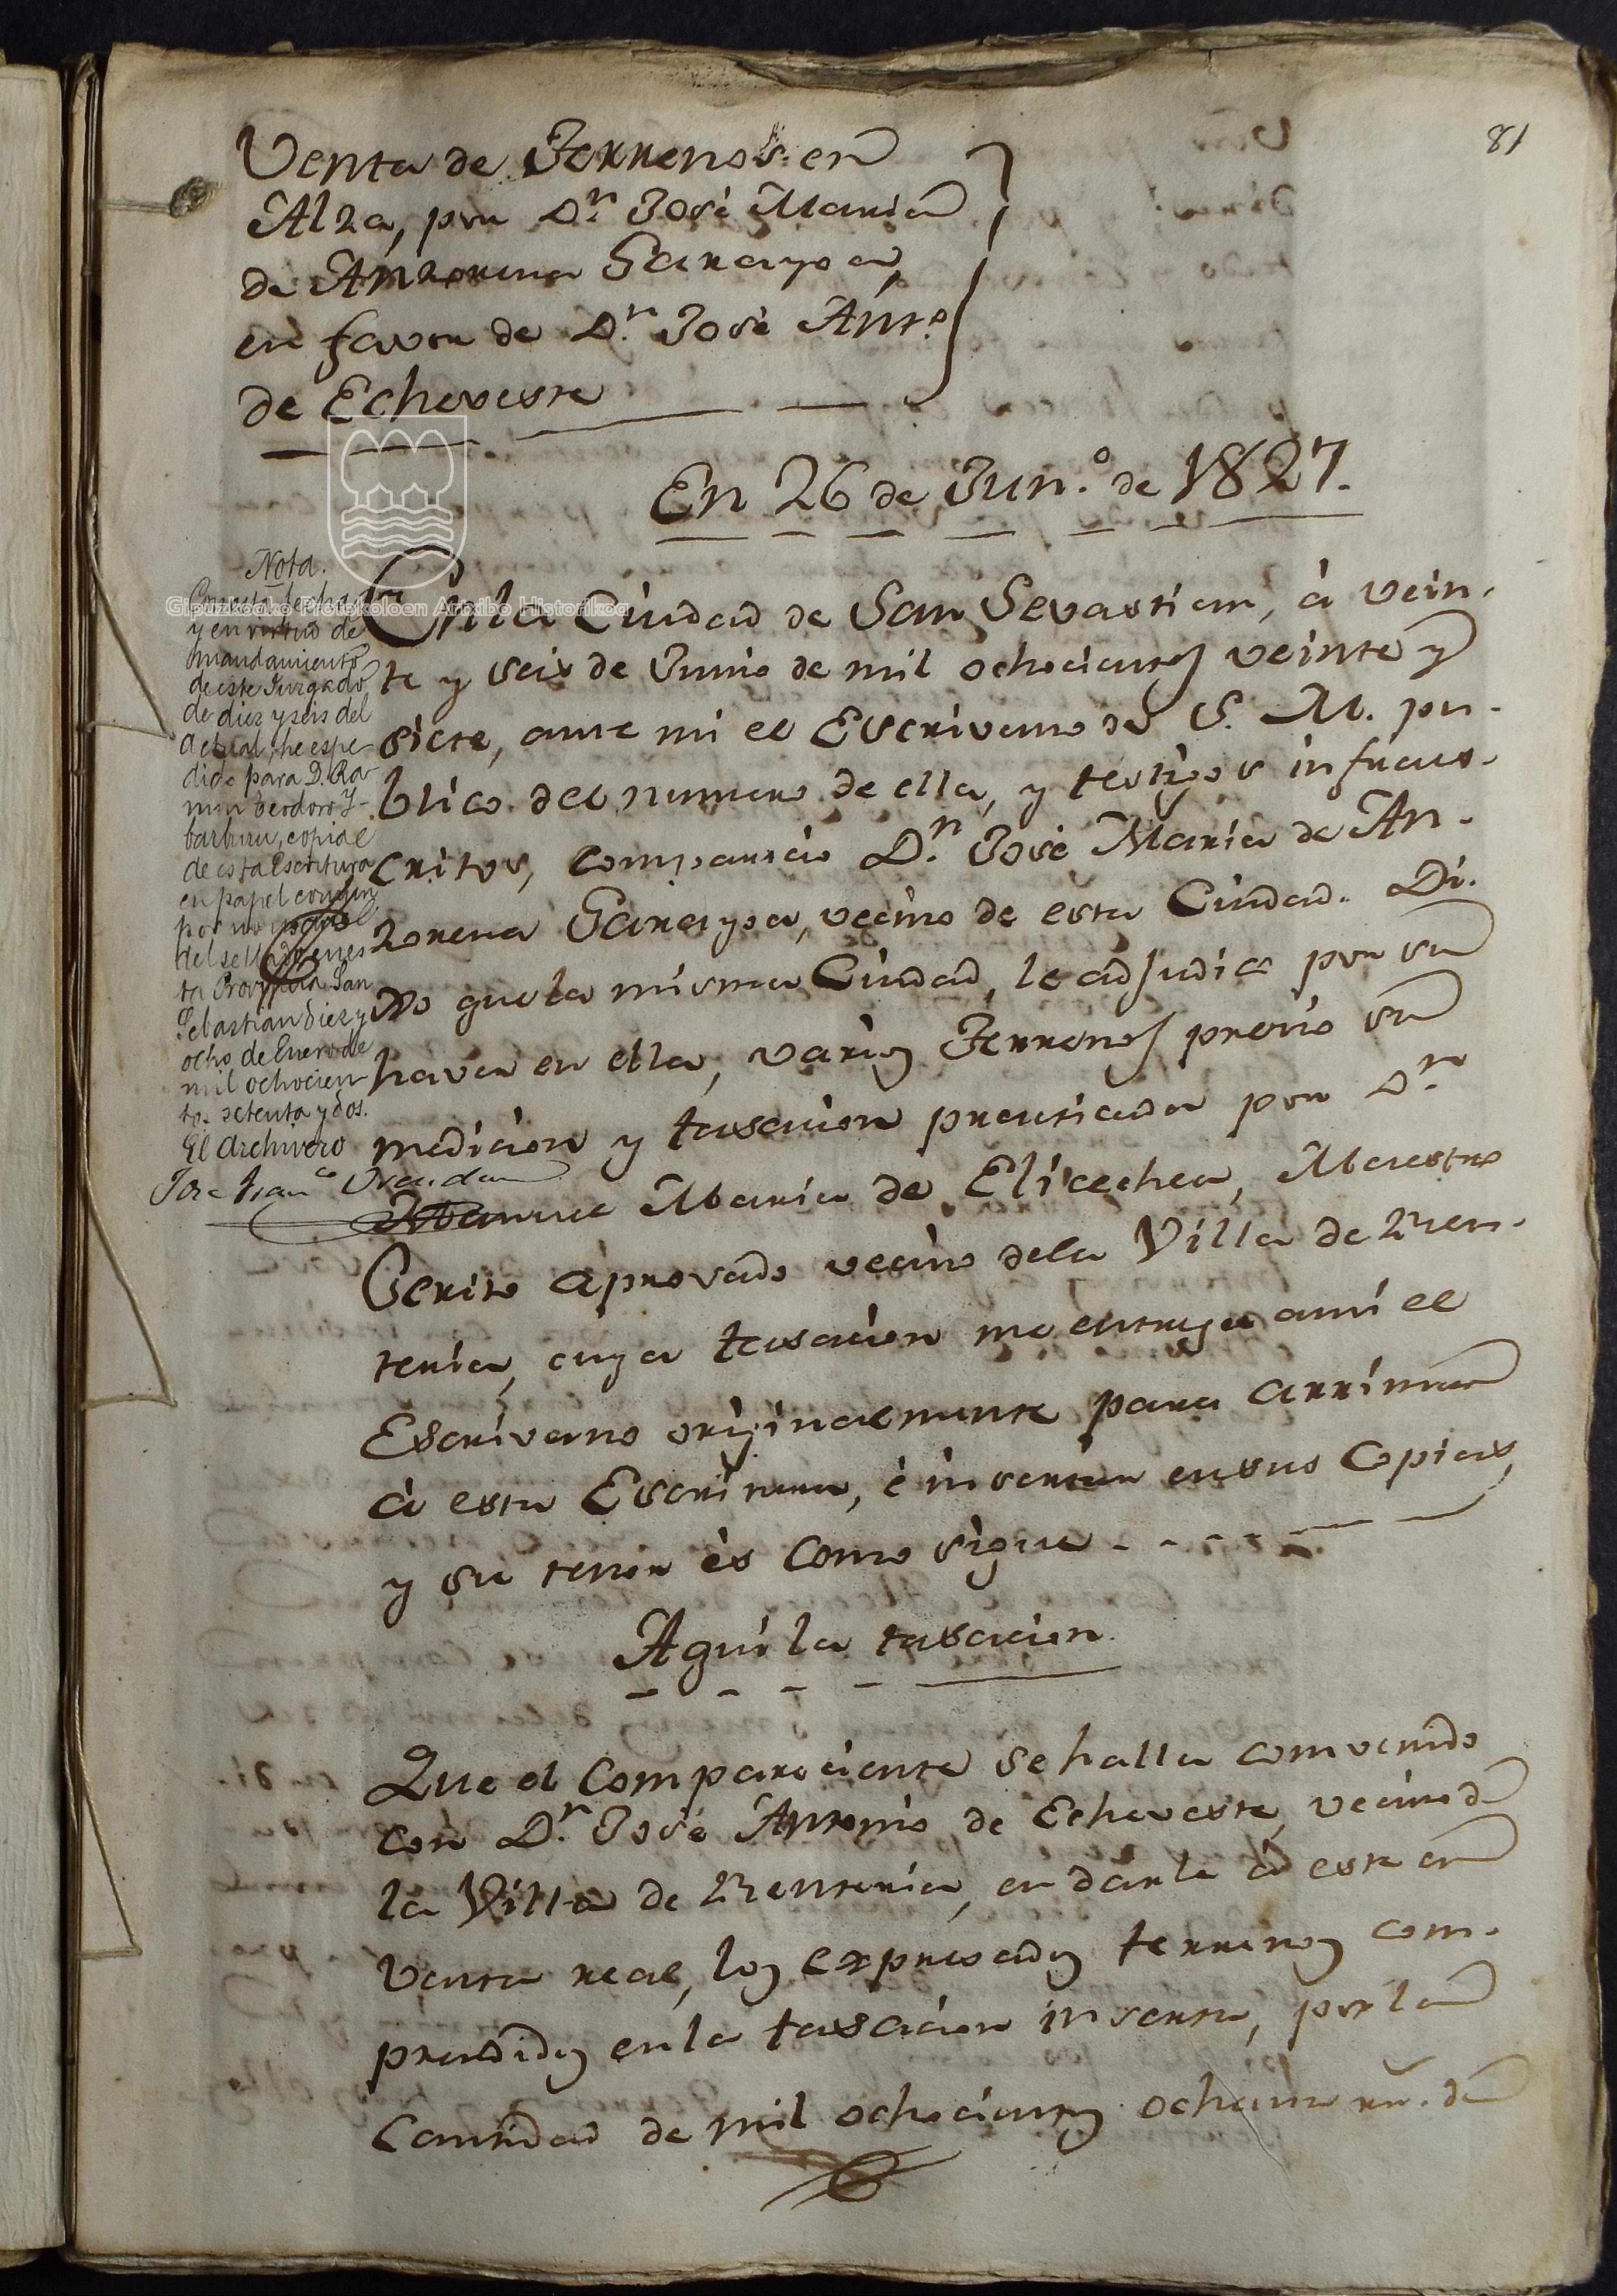 81
Venta de Terrenos en
Alza, por Dn. José Maria
de Anzorena Garayoa,
en favor de Dn. José Anto.
de Echeveste
En 26 de Jun.o de 1827.
En la Ciudad de San Sevastian, à vein-
te y seis de Junio de mil ochocientos veinte y
siete, ante mi el Escrivano de S. M. pu-
blico del numero de ella, y testigos infraes-
critos, compareció Dn. José Maria de An-
zorena Garayoa, vecino de esta Ciudad. Di-
xo que la misma Ciudad, le adjudicó por su
haver en ella, varios Terrenos previo su
medicion y tasacion practicada por Dn.
Manuel Maria de Elicechea, Maestro
Perito aprovado vecino de la Villa de Ren-
teria, cuya tasacion me entrega a mi el
Escrivano originalmente para arrimar
à esta Escritura, è insertar en sus Copias,
y su tenor ès como sigue
Aqui la tasacion
Que el Compareciente se halla convenido
con Dn. José Antonio de Echeveste, vecino de
la Villa de Renteria, en darle à este en
venta real, los expresados terrenos com-
prendidos en la tasacion inserta, por la
Cantidad de mil ochocientos ochenta rs. de
Nota.
Con esta fecha
y en virtud de
mandamiento
de este Juzgado
de diez y seis del
actual, he espe-
dido para D. Ra-
mon Teodoro Y-
barburu, copia
de esta Escritura
en papel comun,
por no usarse
del sellado en es-
ta Provincia. San
Sebastian diez y
ocho de Enero de
mil ochocien-
tos setenta y dos.
El Archivero
Jose Franco.
Gipuzkoako Protokoloen Artxibo Historikoa